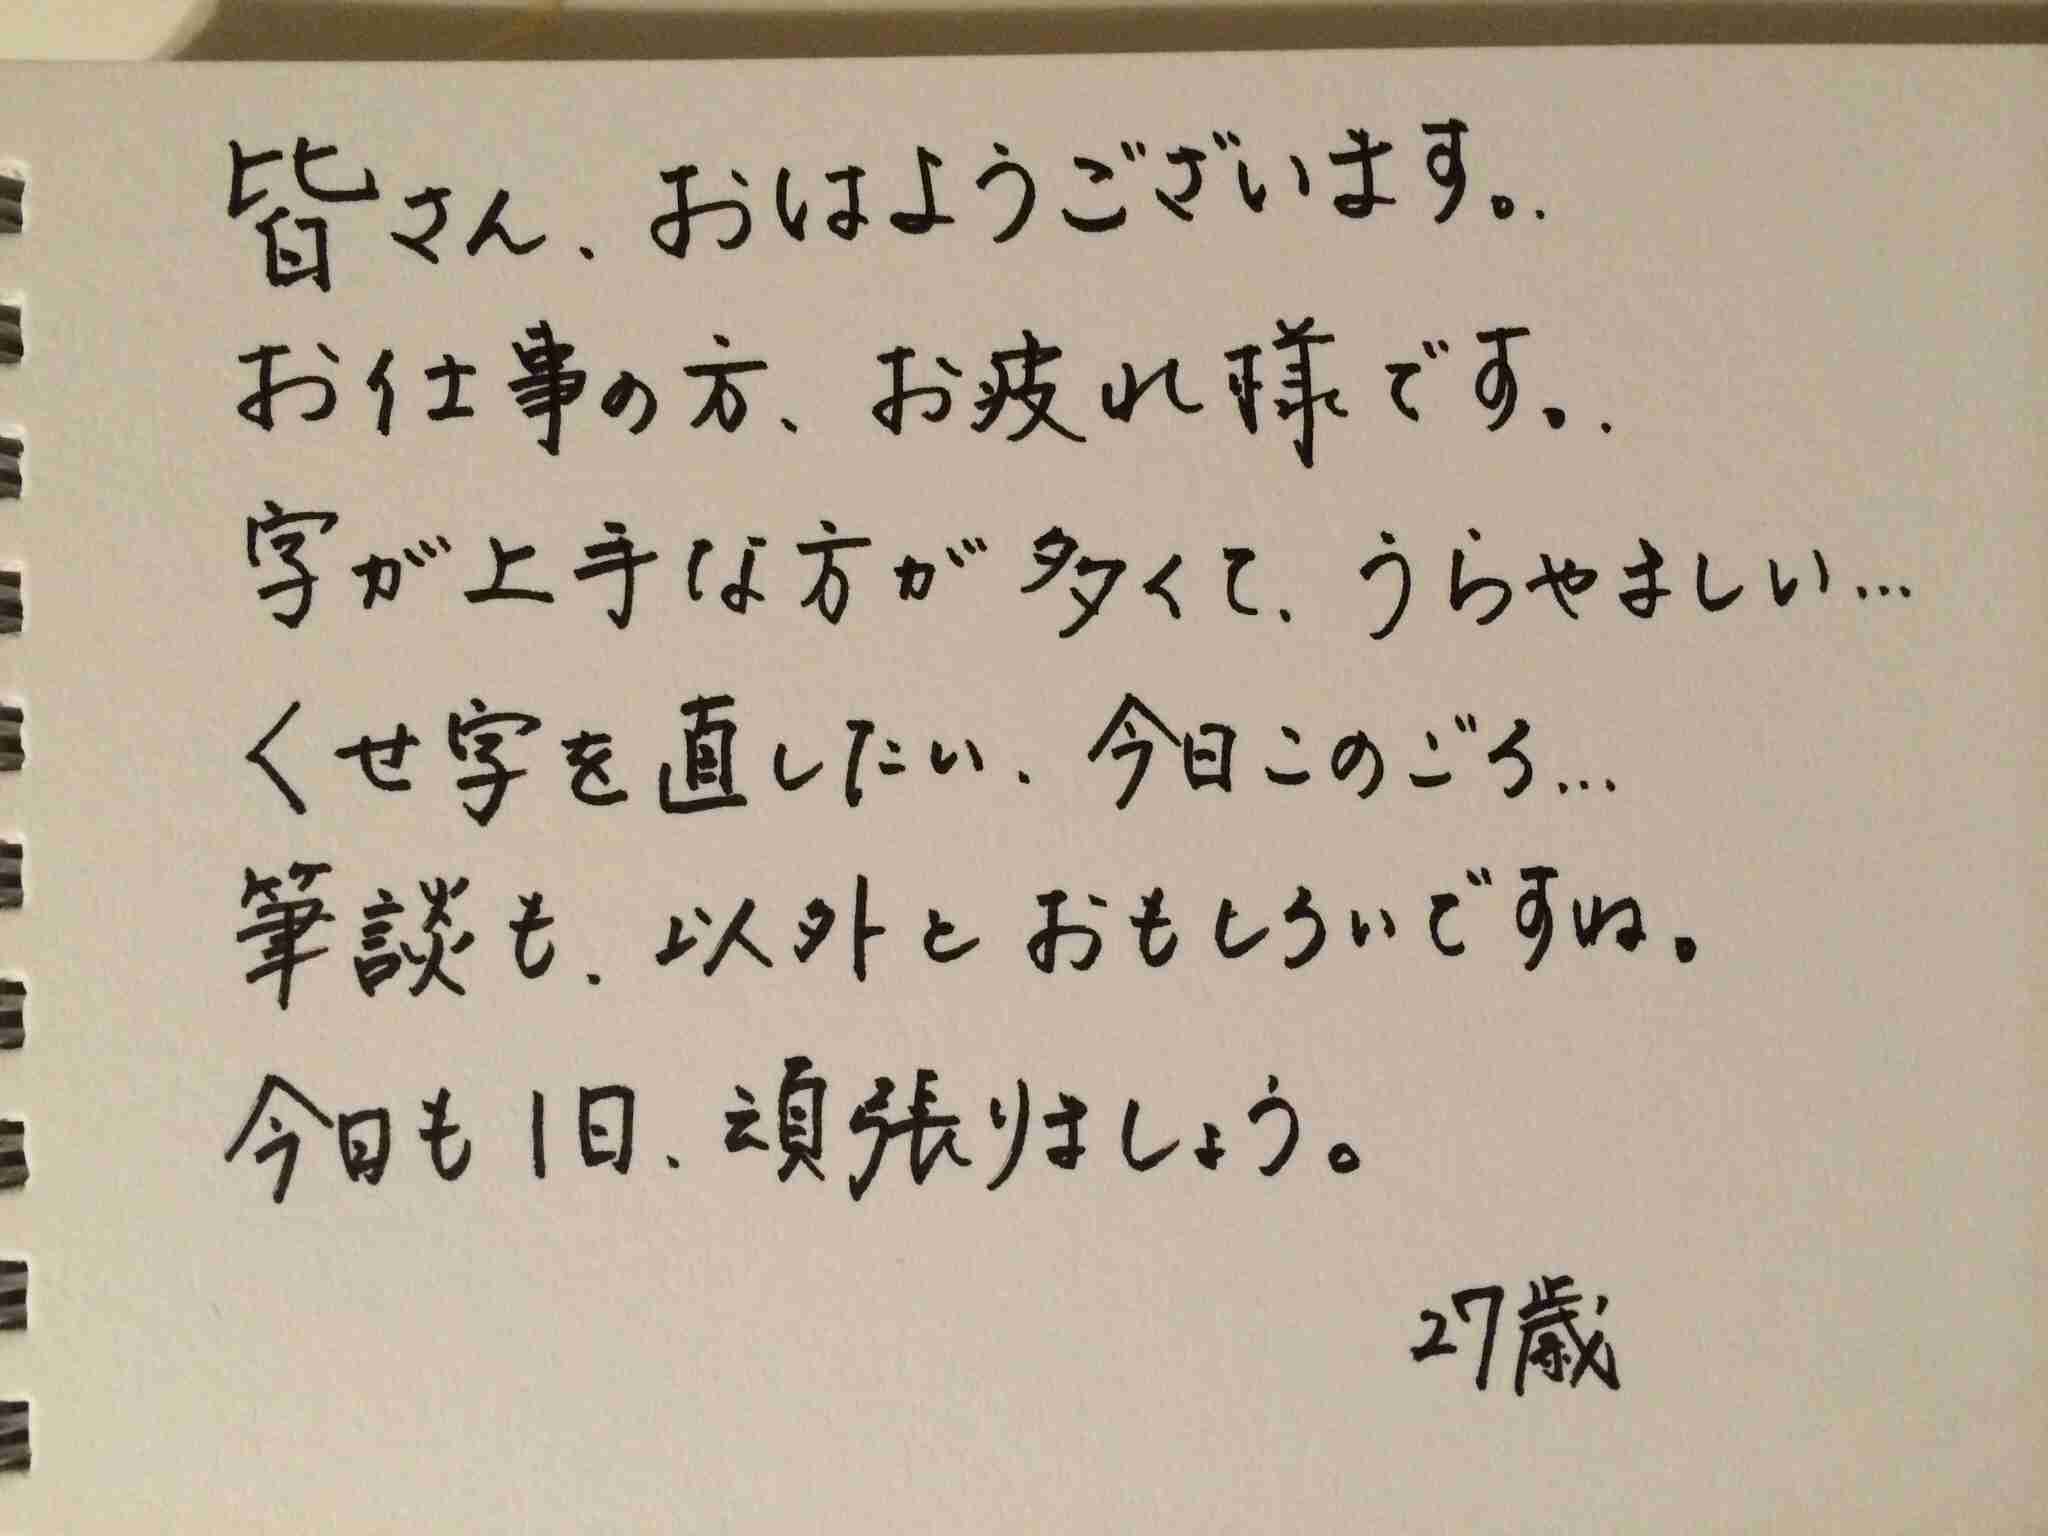 皆さん、おはようございます。.
お仕事の方、お疲れ様です。.
字が上手な方が多くて、うらやましい…
くせ字を直したい、今日このごろ…
筆談も、以外とおもしろいですね。
今日も1日、頑張りましょう。
27歳